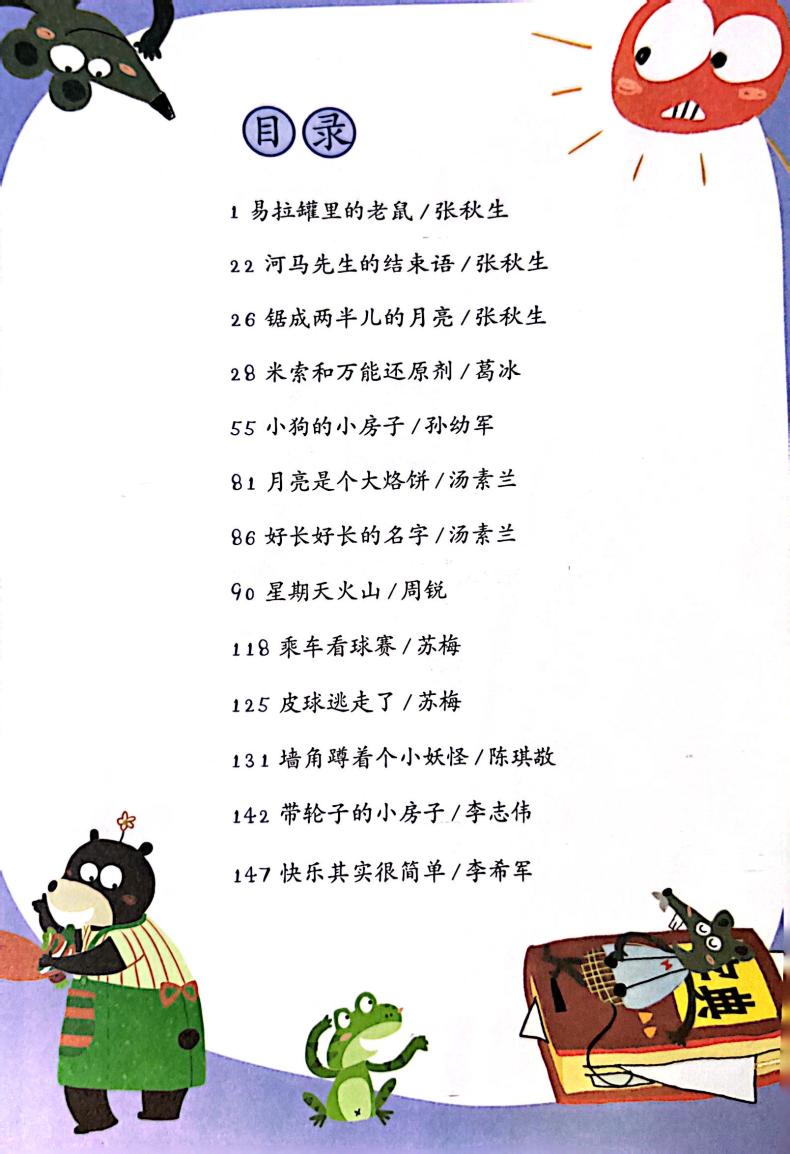 目录
1 易拉罐里的老鼠/张秋生
22 河马先生的结束语/张秋生
26 锯成两半儿的月亮/张秋生
28 米索和万能还原剂/葛冰
55 小狗的小房子/孙幼军
81 月亮是个大烙饼/汤素兰
86 好长好长的名字/汤素兰
90 星期天火山/周锐
118 乘车看球赛/苏梅
125 皮球逃走了/苏梅
131 墙角蹲着个小妖怪/陈琪敬
142 带轮子的小房子/李志伟
147 快乐其实很简单/李希军
典